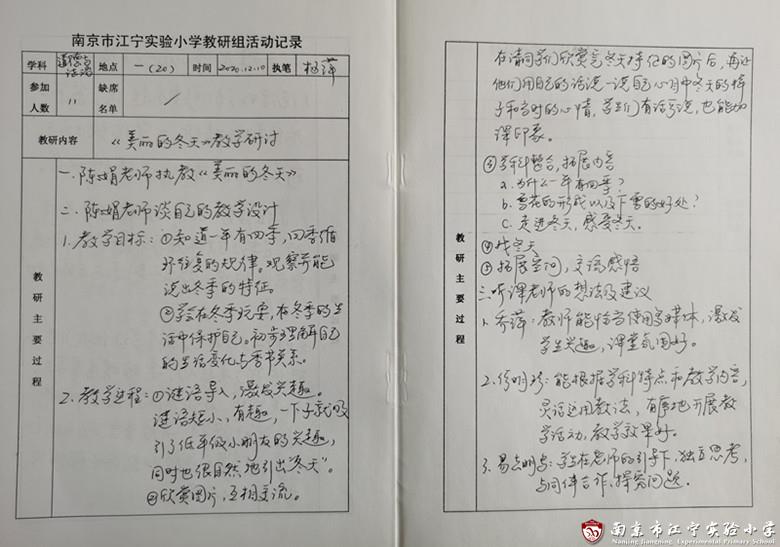 南京市江宁实验小学教研组活动记录
学科 道德与法治 地点 一(20) 时间 2020.12.10 执笔 杨萍
参加人数 11 缺席名单 /
教研内容 《美丽的冬天》教学研讨
教研主要过程
一、陈娟老师执教《美丽的冬天》
二、陈娟老师谈自己的教学设计
1. 教学目标：①知道一年有四季，四季循
环往复的规律。观察并能
说出冬季的特征。
②学会在冬季玩耍，在冬季的生
活中保护自己。初步理解自己
的生活变化与季节关系。
2. 教学过程：①谜语导入，激发兴趣。
谜语短小、有趣，一下子就吸
引了低年级小朋友的兴趣，
同时也很自然地引出"冬天"。
②欣赏图片，互相交流。
在请同学们欣赏完冬天特征的图片后，再让
他们用自己的话说一说自己心目中冬天的样
子和当时的心情，学生们有话可说，也能加
深印象。
③学科整合，拓展内容
a. 为什么一年有四季？
b. 雪花的形成以及下雪的好处？
c. 走进冬天，感受冬天。
④找冬天
⑤拓展空间，交流感悟
教研主要过程
三、听课老师的想法及建议
1. 乔萍：教师能恰当使用多媒体，激发
学生兴趣，课堂氛围好。
2. 能根据学科特点和教学内容，
灵活运用教法，有序地开展教
学活动，教学效果好。
3. 学生在老师的引导下，独立思考，
与同伴合作，探究问题。
南京市江宁实验小学
Nanjing Jiangning Experimental Primary School